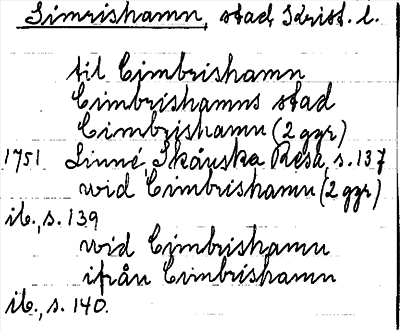 Simrishamn, stad, Krist. l.
til Cimbrishamn
Cimbrishamns stad
Cimbrishamn (2 ggr)
1751 Linné, Skånska Resa, s. 137
wid Cimbrishamn (2 ggr)
ib., s. 139
wid Cimbrishamn
ifrån Cimbrishamn
ib., s. 140.